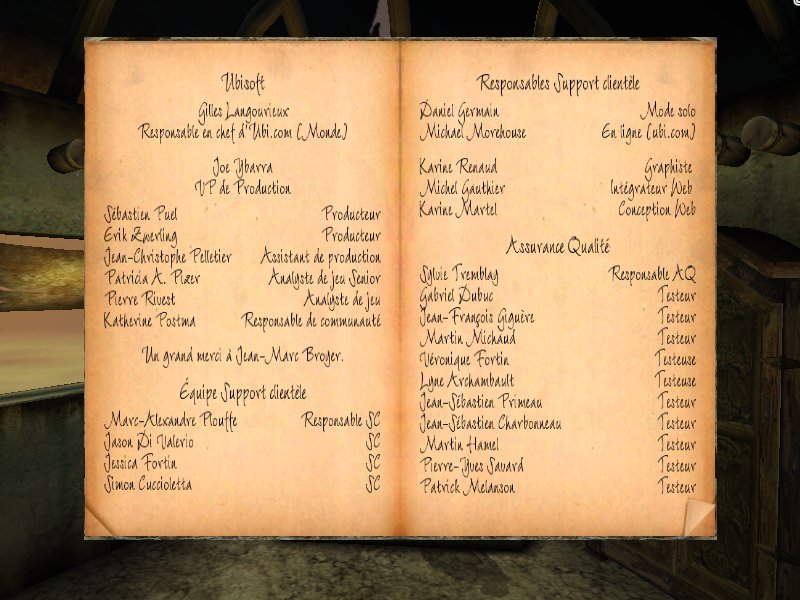 Ubisoft
Gilles Langourieux
Responsable en chef d'Ubi.com (Monde)
Joe Ybarra
VP de Production
Sébastien Puel Producteur
Erik Zwerling Producteur
Jean-Christophe Pelletier Assistant de production
Patricia A. Pizer Analyste de jeu Senior
Pierre Rivest Analyste de jeu
Katherine Postma Responsable de communauté
Un grand merci à Jean-Marc Broyer.
Équipe Support clientèle
Marc-Alexandre Plouffe Responsable SC
Jason Di Valerio SC
Jessica Fortin SC
Simon Cuccioletta SC
Responsables Support clientèle
Daniel Germain Mode solo
Michael Morehouse En ligne (ubi.com)
Karine Renaud Graphiste
Michel Gauthier Intégrateur Web
Karine Martel Conception Web
Assurance Qualité
Sylvie Tremblay Responsable AQ
Gabriel Dubuc Testeur
Jean-François Giguère Testeur
Martin Michaud Testeur
Véronique Fortin Testeuse
Lyne Archambault Testeuse
Jean-Sébastien Primeau Testeur
Jean-Sébastien Charbonneau Testeur
Martin Hamel Testeur
Pierre-Yves Savard Testeur
Patrick Melanson Testeur